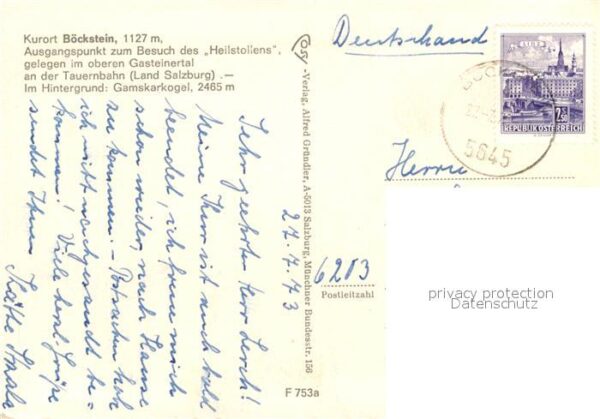 Kurort Böckstein, 1127 m,
Ausgangspunkt zum Besuch des „Heilstollens“,
gelegen im oberen Gasteinertal
an der Tauernbahn (Land Salzburg) .—
Im Hintergrund: Gamskarkogel, 2465 m
Deutschland
REPUBLIK ÖSTERREICH
5645
Herrn
27.7.73
Sehr geehrter Herr Lerch!
Meine Kur ist auch bald
beendet, ich freue mich
schon wieder, nach Hause
zu kommen. - Postsachen hab
ich nicht nachgesandt be-
kommen! Viele herzl. Grüße
sendet Ihnen
Käthe
-Verlag, Alfred Gründler, A-5013 Salzburg, Münchner Bundesstr. 156
6203
Postleitzahl
privacy protection
Datenschutz
F 753a